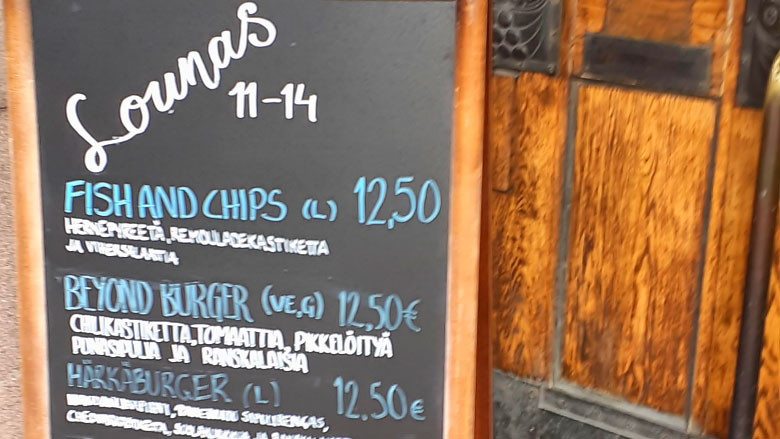 Lounas
11-14
FISH AND CHIPS (L) 12,50
HERNEPYREETÄ, REMOULADEKASTIKETTA
JA VIHERSALAATTIA
BEYOND BURGER (VE,G) 12,50€
CHILIKASTIKETTA, TOMAATTIA, PIKKELÖITYÄ
PUNASIPULIA JA RANSKALAISIA
HÄRKÄBURGER (L) 12.50€